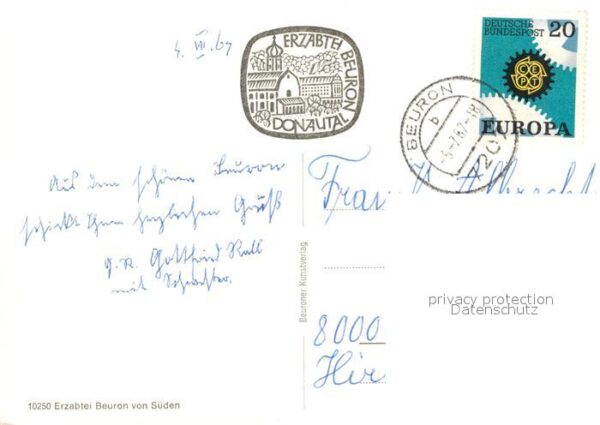 4. VII. 67
ERZABTEI BEURON
DONAUTAL
DEUTSCHE
BUNDESPOST 20
CEPT
EUROPA
BEURON
b
7207
Aus dem schönen Beuron
schickt Ihnen herzlichen Gruß
Gottfried Rall
mit Schwester.
Frau
8000
Hir
Beuroner Kunstverlag
privacy protection
Datenschutz
10250 Erzabtei Beuron von Süden